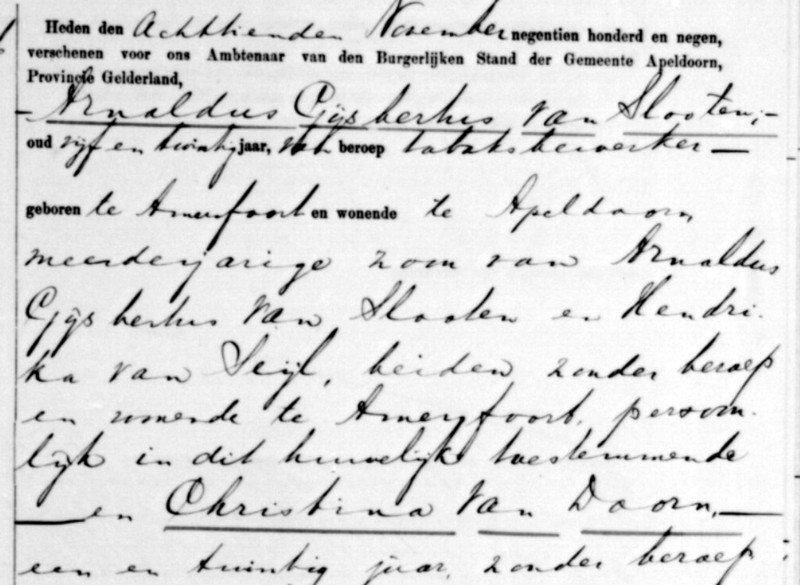 Heden den Achttienden November negentien honderd en negen,
verschenen voor ons Ambtenaar van den Burgerlijken Stand der Gemeente Apeldoorn,
Provincie Gelderland,
Arnoldus Gijsbertus van Slooten,
oud vijf en twintig jaar, van beroep tabaksbewerker
geboren te Amersfoort en wonende te Apeldoorn
meerderjarige zoon van Arnoldus
Gijsbertus van Slooten en Hendri-
ka van Seijl, beiden zonder beroep
en wonende te Amersfoort, persoon-
lijk in dit huwelijk toestemmende
en Christina van Doorn,
een en twintig jaar, zonder beroep